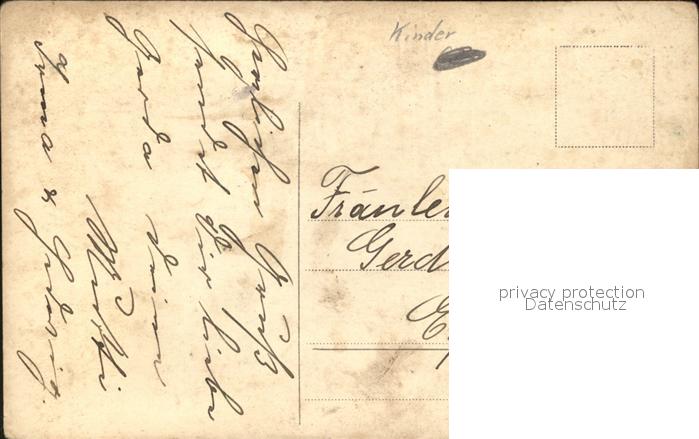 Kinder
Herzlichen Gruß
sendet Dir liebe
Gerda deine
Mutti
Irma & Hedwig.
Fräulei
Gerd
E
privacy protection
Datenschutz